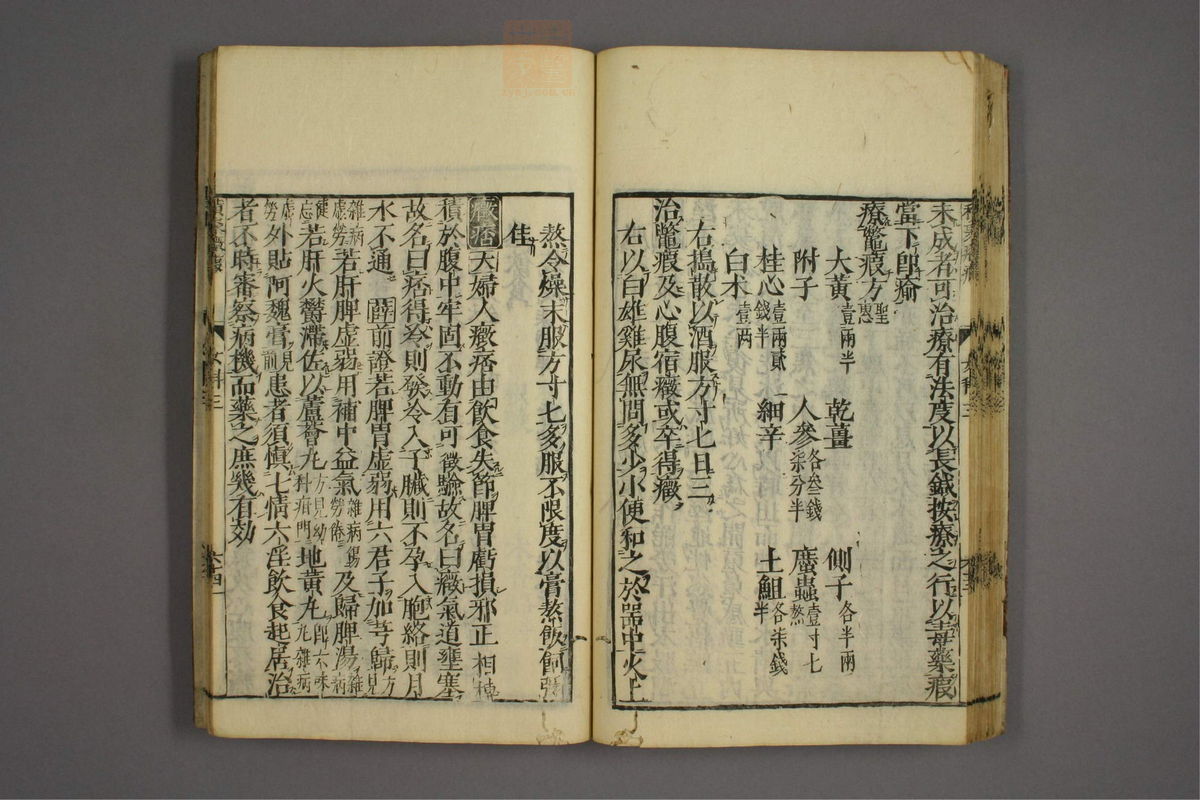 未成者可治療有法度以長鍼按療之行以毒藥瘕
當下卽瘉
療鼈瘕方 聖惠
大黄 壹兩半 乾薑 側子 各半兩
附子 人參 各叁錢柒分半 䗪蟲 壹寸七熬
桂心 壹兩貳錢半 細辛 土䱉 各柒錢半
白术 壹两
右搗散以酒服方寸七日三
治鼈瘕及心腹宿癥或卒得癥
右以白雄雞尿無問多少小便和之於器中火上
熬令燥末服方寸七多服不限度以膏熬飯飼彌
佳
癥痞 夫婦人癥痞由飲食失節脾胃虧損邪正相搏
積於腹中牢固不動有可徵驗故名曰癥氣道壅塞
故名曰痞得冷則發冷入子臟則不孕入胞絡則月
水不通 開前證若脾胃虛弱用六君子加芎歸 方見
雜病虛勞 若肝脾虛弱用補中益氣 雜病勞倦 及歸脾湯 雜病
健忘 若肝火鬱滯佐以蘆薈九 方見幼科疳門 地黄九 卽六味九雜病
虛勞 外貼阿魏膏 見前 患者須愼七情六淫飲食起居治
者不時審察病機而藥之庶幾有効
女科三